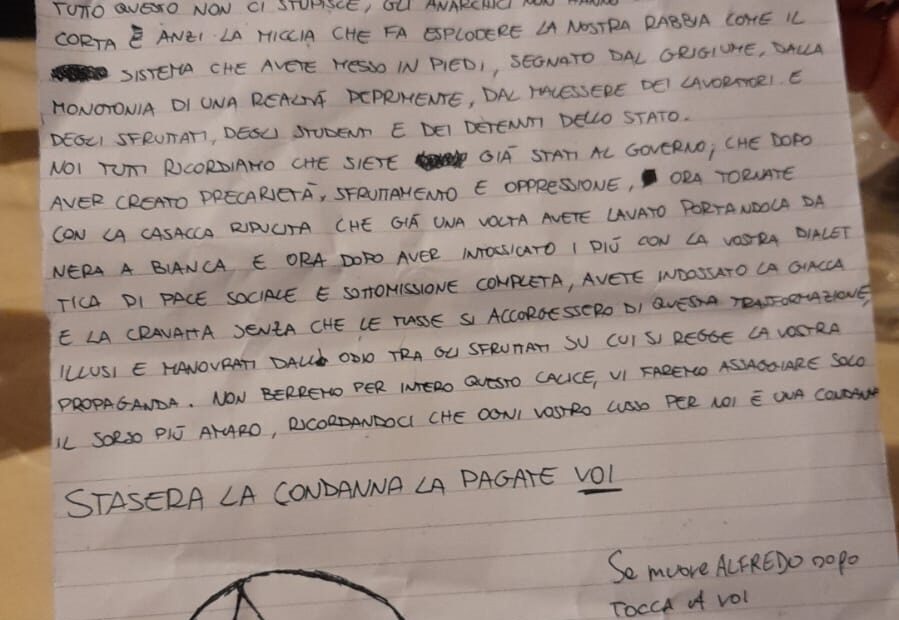 TUTTO QUESTO NON CI STUPISCE, GLI ANARCHICI NON HANNO
CORTA È ANZI LA MICCIA CHE FA ESPLODERE LA NOSTRA RABBIA COME IL
SISTEMA CHE AVETE MESSO IN PIEDI, SEGNATO DAL GRIGIUME, DALLA
MONOTONIA DI UNA REALTÀ DEPRIMENTE, DAL MALESSERE DEI LAVORATORI. E
DEGLI SFRUTTATI, DEGLI STUDENTI E DEI DETENUTI DELLO STATO.
NOI TUTTI RICORDIAMO CHE SIETE GIÀ STATI AL GOVERNO; CHE DOPO
AVER CREATO PRECARIETÀ, SFRUTTAMENTO E OPPRESSIONE, ORA TORNATE
CON LA CASACCA RIPULITA CHE GIÀ UNA VOLTA AVETE LAVATO PORTANDOLA DA
NERA A BIANCA E ORA DOPO AVER INTOSSICATO I PIÙ CON LA VOSTRA DIALET
TICA DI PACE SOCIALE E SOTTOMISSIONE COMPLETA, AVETE INDOSSATO LA GIACCA
E LA CRAVATTA SENZA CHE LE MASSE SI ACCORGESSERO DI QUESTA TRASFORMAZIONE,
ILLUSI E MANOVRATI DALL ODIO TRA GLI SFRUTTATI SU CUI SI REGGE LA VOSTRA
PROPAGANDA. NON BERREMO PER INTERO QUESTO CALICE, VI FAREMO ASSAGGIARE SOLO
IL SORSO PIÙ AMARO, RICORDANDOCI CHE OGNI VOSTRO LUSSO PER NOI È UNA CONDANNA
STASERA LA CONDANNA LA PAGATE VOI
Se muore ALFREDO DOPO
TOCCA A VOI